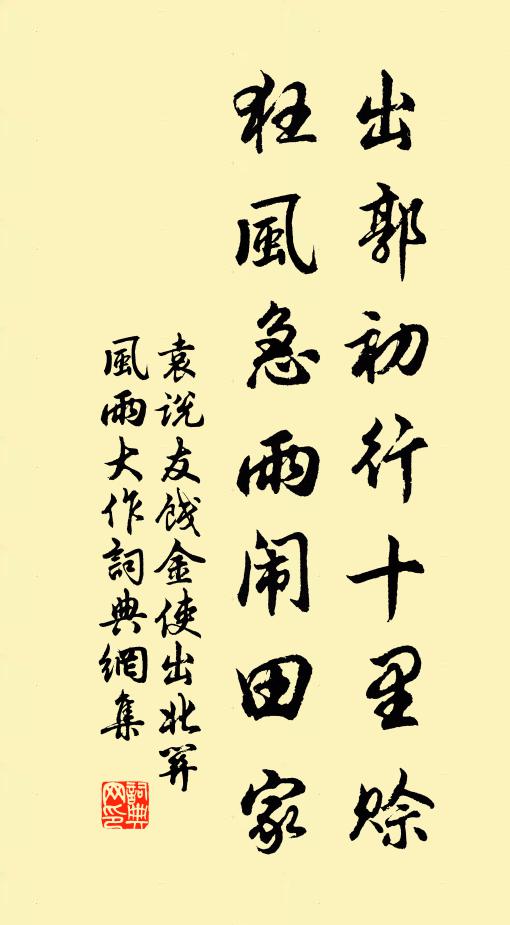 出郭初行十里赊
狂風急雨闹田家
袁说友餞金使出北關
風雨大作詞典網集
詞典网印